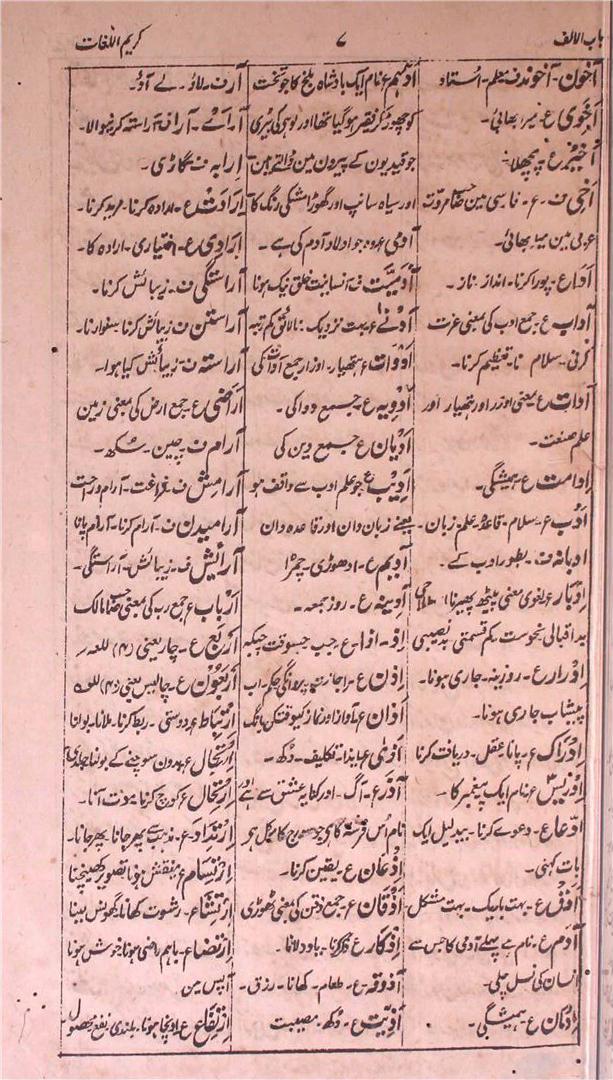 باب الالف
۷
کریم اللغات
آخون - آخوند ف معلم - استاد
اَخَوی ع - میرا بھائی -
اَخِیْر ع پچھلا -
عربی مین میرا بھائی -
اَدَا ع - پورا کرنا - انداز - ناز -
آداب ع - جمع ادب کی معنی عزت
کرنی - سلام - تعظیم کرنا -
اَدَات ع یعنی اوزار اور ہتھیار اور
علم صنعت -
اِدامت ع - ہمیشگی -
اَدَب ع - سلام - قاعدہ - علم زبان -
ادبانہ ف - بطور ادب کے -
اِدْبَار ع - لغوی معنی پیٹھ پھیرنا
بد اقبالی نحوست کم قسمتی بدنصیبی
اِدْرار ع - روزینہ - جاری ہونا -
پیشاب جاری ہونا -
اِدْرَاک ع - پانا - عقل - دریافت کرنا
اِدْرِیْس ع نام ایک پیغمبر کا -
اِدّعا ع - دعوے کرنا - بیدلیل ایک
بات کہنی -
اَدَقّ ع - بہت باریک - بہت مشکل -
آدَم ع - نام ہے پہلے آدمی کا جس سے
انسان کی نسل چلی -
اِدْمَان ع - ہمیشگی -
اَدْہَم ع نام ایک بادشاہ بلخ کا جو تخت
کو چھوڑ کر فقیر ہو گیا تھا اور لوہے کی بیڑی
جو قیدیون کے پیرون مین ڈالتے ہین -
اور سیاہ سانپ اور گھوڑا مشکی رنگ کا
آدمی ع - وہ جو اولاد آدم کی ہے -
آدمیّت ف انسانیت خلق نیک ہونا
اَدْنٰے ع بہت نزدیک - نالائق کم رتبہ
اَدَوَات ع ہتھیار - اوزار جمع ادات کی
اَدْوِیہ ع - جمع دوا کی -
اَدْیَان ع جمع دین کی
اَدِیْب ع جو علم ادب سے واقف ہو
یعنے زبان دان اور قاعدہ دان
اَدِیم ع - ادھوڑی - چمڑا
آدِینہ ع - روز جمعہ -
اِذ - اذا - ع جب جسوقت جبکہ
اِذن ع - اجازت پروانگی حکم - اب
اَذان ع آواز اور نماز کیوقت کی بانگ
اَذٰی ع ایذا - تکلیف - دکھ -
آذَر ع - آگ - اور کنایہ عشق سے ہے
اِذْعَان ع یقین کرنا -
اَذْقَان ع - جمع ذقن کی معنی ٹھوڑی
اِذْکار ع ذکر کرنا - یاد دلانا -
آذوقہ - ع - طعام - کھانا - رزق -
اَذِیّت ع - دکھ - مصیبت
آر ف - لاؤ - لے آؤ -
آرا - آراے - آراف آراستہ کرنیوالا -
ارابہ ف گاڑی -
اِرَادَت ع - ارادہ کرنا - مرید کرنا -
اِرَادِی ع - اختیاری - ارادہ کا -
آراستگی ف - زیبائش کرنا -
آراستن ف زیبائش کرنا سنوارنا -
آراستہ ف زیبائش کیا ہوا -
اَرَاضی ع - جمع ارض کی معنی زمین
آرام ف - چین - سکھ -
آرامِش ف - فراغت - آرام و راحت
آرامیدن ف - آرام کرنا - آرام پانا
آرائیش ف - زیبائش - آراستگی -
اَرْبَاب ع جمع رب کی معنی صاحب مالک
اَرْبَع ع - چار یعنی (۴)
اَرْبَعُون ع - چالیس یعنی (۴۰)
اِرْتِبَاط ع دوستی - ربط کرنا - ملانا - بولنا
اِرْتِجَال ع بدون سوچنے کے بولنا جلدی
اِرْتِحَال ع کوچ کرنا - موت آنا -
اِرْتِدَاد ع - مذہب سے پھر جانا - پھر جانا -
اِرْتِسَام ع - نقش ہونا تصویر کھینچنا
اِرْتِشَا ع - رشوت کھانا - گھونس لینا
اِرْتِضَا ع - باہم راضی ہونا - خوش ہونا
آپس مین
اِرْتِفَاع ع اونچا ہونا - بلندی نفع محصول